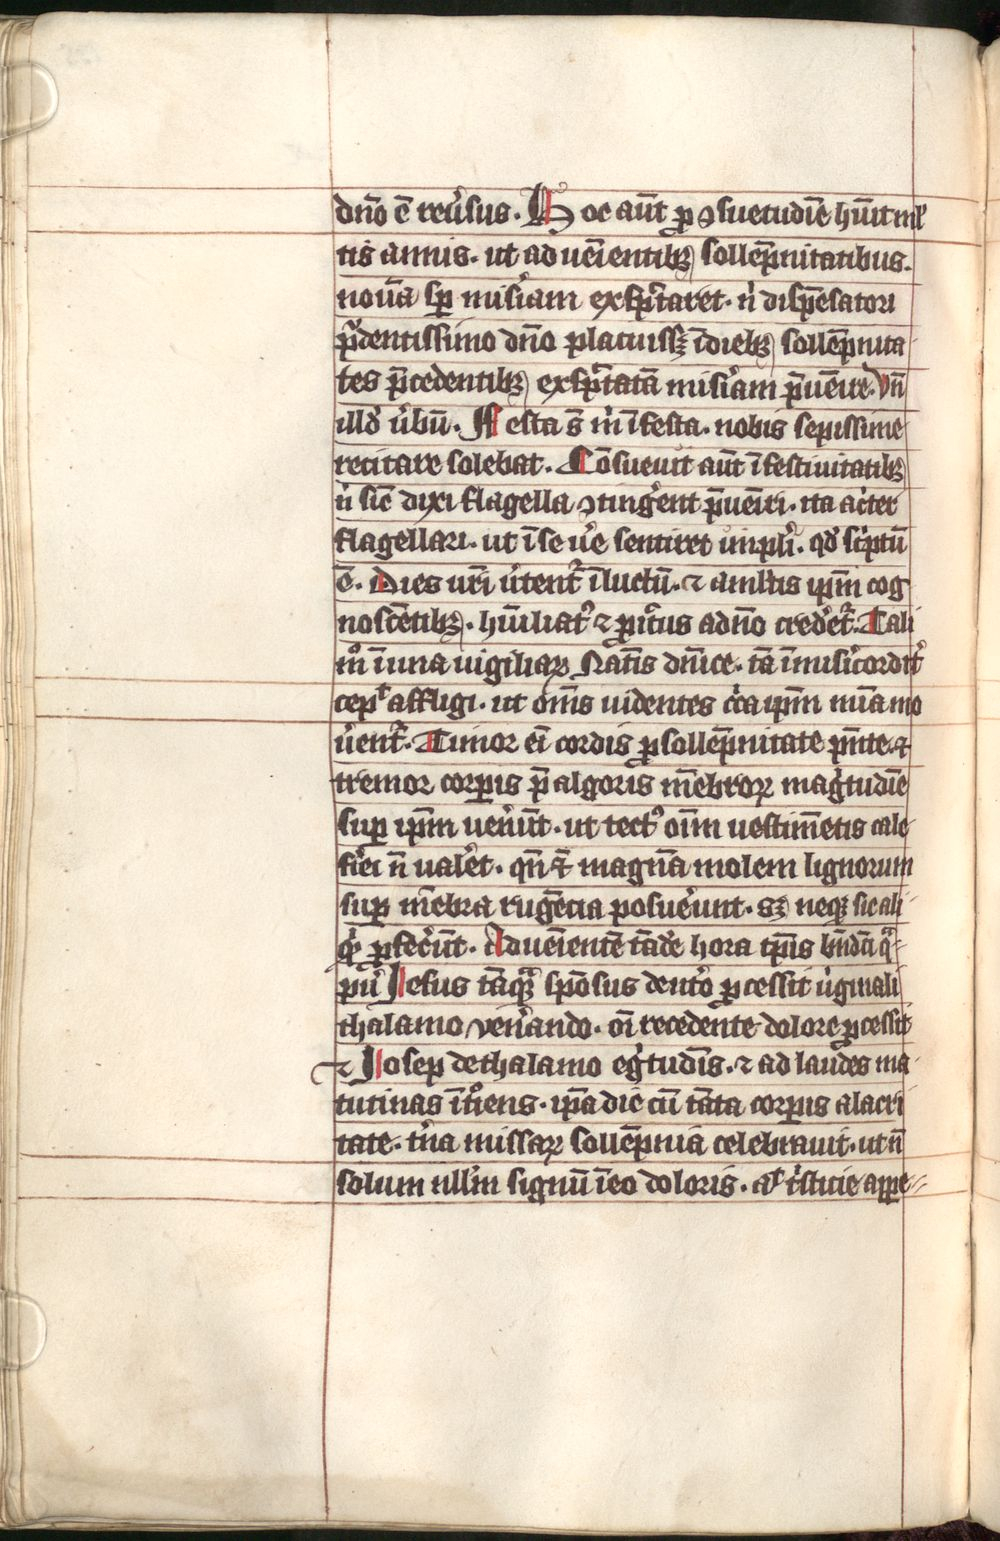 dn̄o ē reu̾sus. Hoc aūt ꝑ ꝯsuetudiē hūit ml̾
tis annis. ut aduēientibꝫ sollēpnitatibus.
nouā sp̄ misi̾am exsp̄taret. n̾ disp̄esatori
pͥdentissimo dn̄o placuissꝫ īdiebꝫ sollēpnita
tes p̄cedentibꝫ exsp̄tatā misi̾am p̄uēire. Vn̄
illd̾ u̾bū. Festa s̄ m̾ īfesta. nobis sepissime
recitare solebat. Cōsueuit aūt īfestiuitatibꝫ
n̾ sic̄ dixi flagella ꝯting̾ent p̄uēiri. ita ac̾ter
flagellari. ut īse u̾e sentiret īnpl̾i. qd̾ sc̾ptū
ē. Dies ur̄i u̾tent̾ īluctū. ⁊ amlt̾is ip̄m cog
noscētibꝫ. hūiliat̾ ⁊ ꝑcͥtus adn̄o cred̾et̾. Tali
mͦ īuna uigiliaꝝ Natīs dn̄ice. tā īmisi̾cordit̾
cep̾ affligi. ut om̄s uidentes cͥca ip̄m miīa mo
u̾ent̾. Timor ei̾ cordis ꝓsollēpnitate pn̄te. ⁊
tremor corꝑis p̄ algoris mēbroꝝ mag̾tudiē
suꝑ ip̄m uen̾ūt. ut tect̾ oīm uestimētis cale
fi̾ei n̄ ual̾et. qn̄ ⁊ magnā molem lignorum
suꝑ mēbra rugētia posu̾eunt. sꝫ neqꝫ sic ali
qͥd ꝓfec̾ūt. Aduēientē tād̾e hora tp̄is bn̄dc̄i qͣ
pu̾ Iesus tāqͣꝫ spōsus dent̾o ꝓcessit u̾ginali
thalamo uen̾ando. oī recedente dolore ꝓcessit
⁊ Iosep dethalamo eg̾tudīs. ⁊ ad laudes ma
tutinas ītͦiens. ip̄a die cū tāta corꝑis alacri
tate. t̾na missaꝝ sollēpnia celebrauit. ut n̄
solum ull̾m signū īeo doloris. al̾ tͥsticie appe